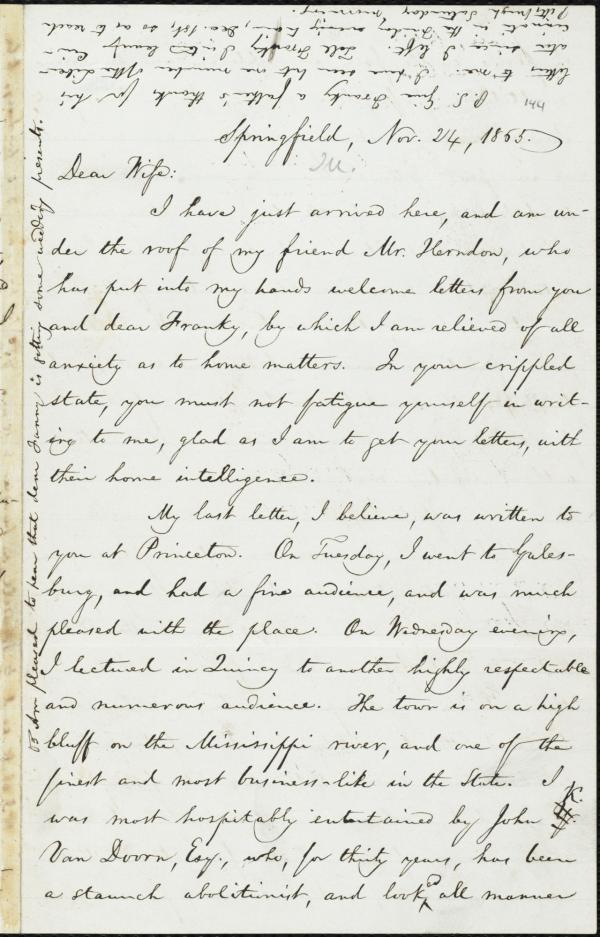 Springfield, Nov. 24, 1865.
Ill.
Dear Wife:
I have just arrived here, and am un-
der the roof of my friend Mr. Herndon, who
has put into my hands welcome letters from you
and dear Franky, by which I am relieved of all
anxiety as to home matters. In your crippled
state, you must not fatigue yourself in writ-
ing to me, glad as I am to get your letters, with
their home intelligence.
My last letter, I believe, was written to
you at Princeton. On Tuesday, I went to Gales-
burg, and had a fine audience, and was much
pleased with the place. On Wednesday evening,
I lectured in Quincy to another highly respectable
and numerous audience. The town is on a high
bluff on the Mississippi river, and one of the
finest and most business-like in the State. I
was most hospitably entertained by John K.
Van Doorn, Esq., who, for thirty years, has been
a staunch abolitionist, and looked all manner
P.S. Give Franky a father's thanks for his
letters to me. I have seen but one number of the Liber-
ator since I left. Tell Franky I intend leaving Cin-
cinnati in the Friday evening train, Dec. 1st, so as to reach
Pittsburgh Saturday morning.
Am pleased to hear that dear Fanny is getting some wedding presents.